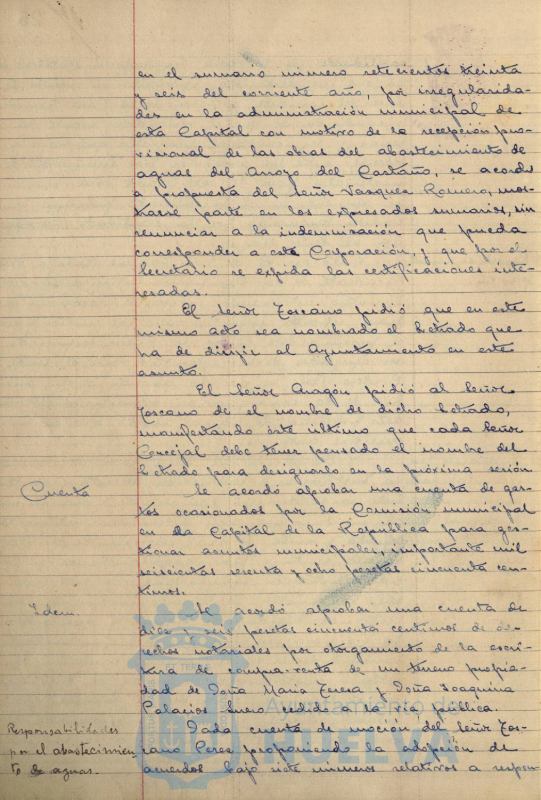 en el sumario número setecientos treinta
y seis del corriente año, por irregularida-
des en la administración municipal de
esta Capital con motivo de la recepción pro-
visional de las obras del abastecimiento de
aguas del Arroyo del Castaño, se acordó
a propuesta del Señor Vazquez Romero, mos-
trarse parte en los expresados sumarios, sin
renunciar a la indemnización que pueda
corresponder a esta Corporación, y que por el
Secretario se expida las certificaciones inte-
resadas.
El Señor Toscano pidió que en este
mismo acto sea nombrado el Letrado que
ha de dirigir al Ayuntamiento en este
asunto.
El Señor Aragón pidió al Señor
Toscano de el nombre de dicho Letrado,
manifestando este último que cada Señor
Concejal debe tener pensado el nombre del
Letrado para designarlo en la próxima sesión
Cuenta
Se acordó aprobar una cuenta de gas-
tos ocasionados por la Comisión municipal
en la Capital de la República para ges-
tionar asuntos municipales, importante mil
seiscientas sesenta y ocho pesetas cincuenta cen-
timos.
Idem.
Se acordó aprobar una cuenta de
diez y seis pesetas cincuenta centimos de de-
rechos notariales por otorgamiento de la escri-
tura de compra-venta de un terreno propie-
dad de Doña Maria Teresa y Doña Joaquina
Palacios Suero cedido a la vía pública.
Responsabilidades
por el abastecimien-
to de aguas.
Dada cuenta de moción del Señor Tos-
cano Perez proponiendo la adopción de
acuerdos bajo siete números relativos a respon-
Ayuntamiento de
HUELVA